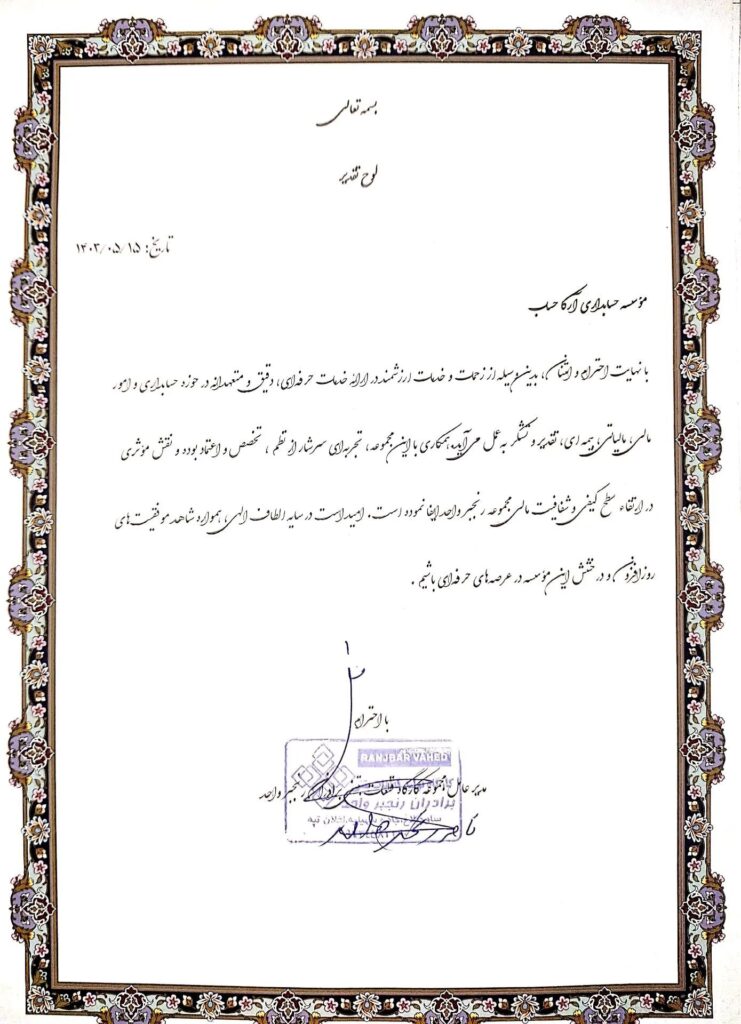 بسمه تعالی
لوح تقدیر
تاریخ: ۱۴۰۳/۰۵/۱۵
مؤسسه حسابداری آرکا حساب
با نهایت احترام و امتنان، بدینوسیله از زحمات و خدمات ارزشمند در ارائه خدمات حرفه‌ای، دقیق و متعهدانه در حوزه حسابداری و امور
مالی، مالیاتی، بیمه ای، تقدیر و تشکر به عمل می‌آید. همکاری با این مجموعه، تجربه‌ای سرشار از نظم ، تخصص و اعتماد بوده و نقش مؤثری
در ارتقاء سطح کیفی و شفافیت مالی مجموعه رنجبر واحد ایفا نموده است. امید است در سایه الطاف الهی، همواره شاهد موفقیت‌های
روزافزون و درخشش این مؤسسه در عرصه‌های حرفه‌ای باشیم .
با احترام
RANJBAR VAHED
مدیر عامل برادران رنجبر واحد
برادران رنجبر واحد